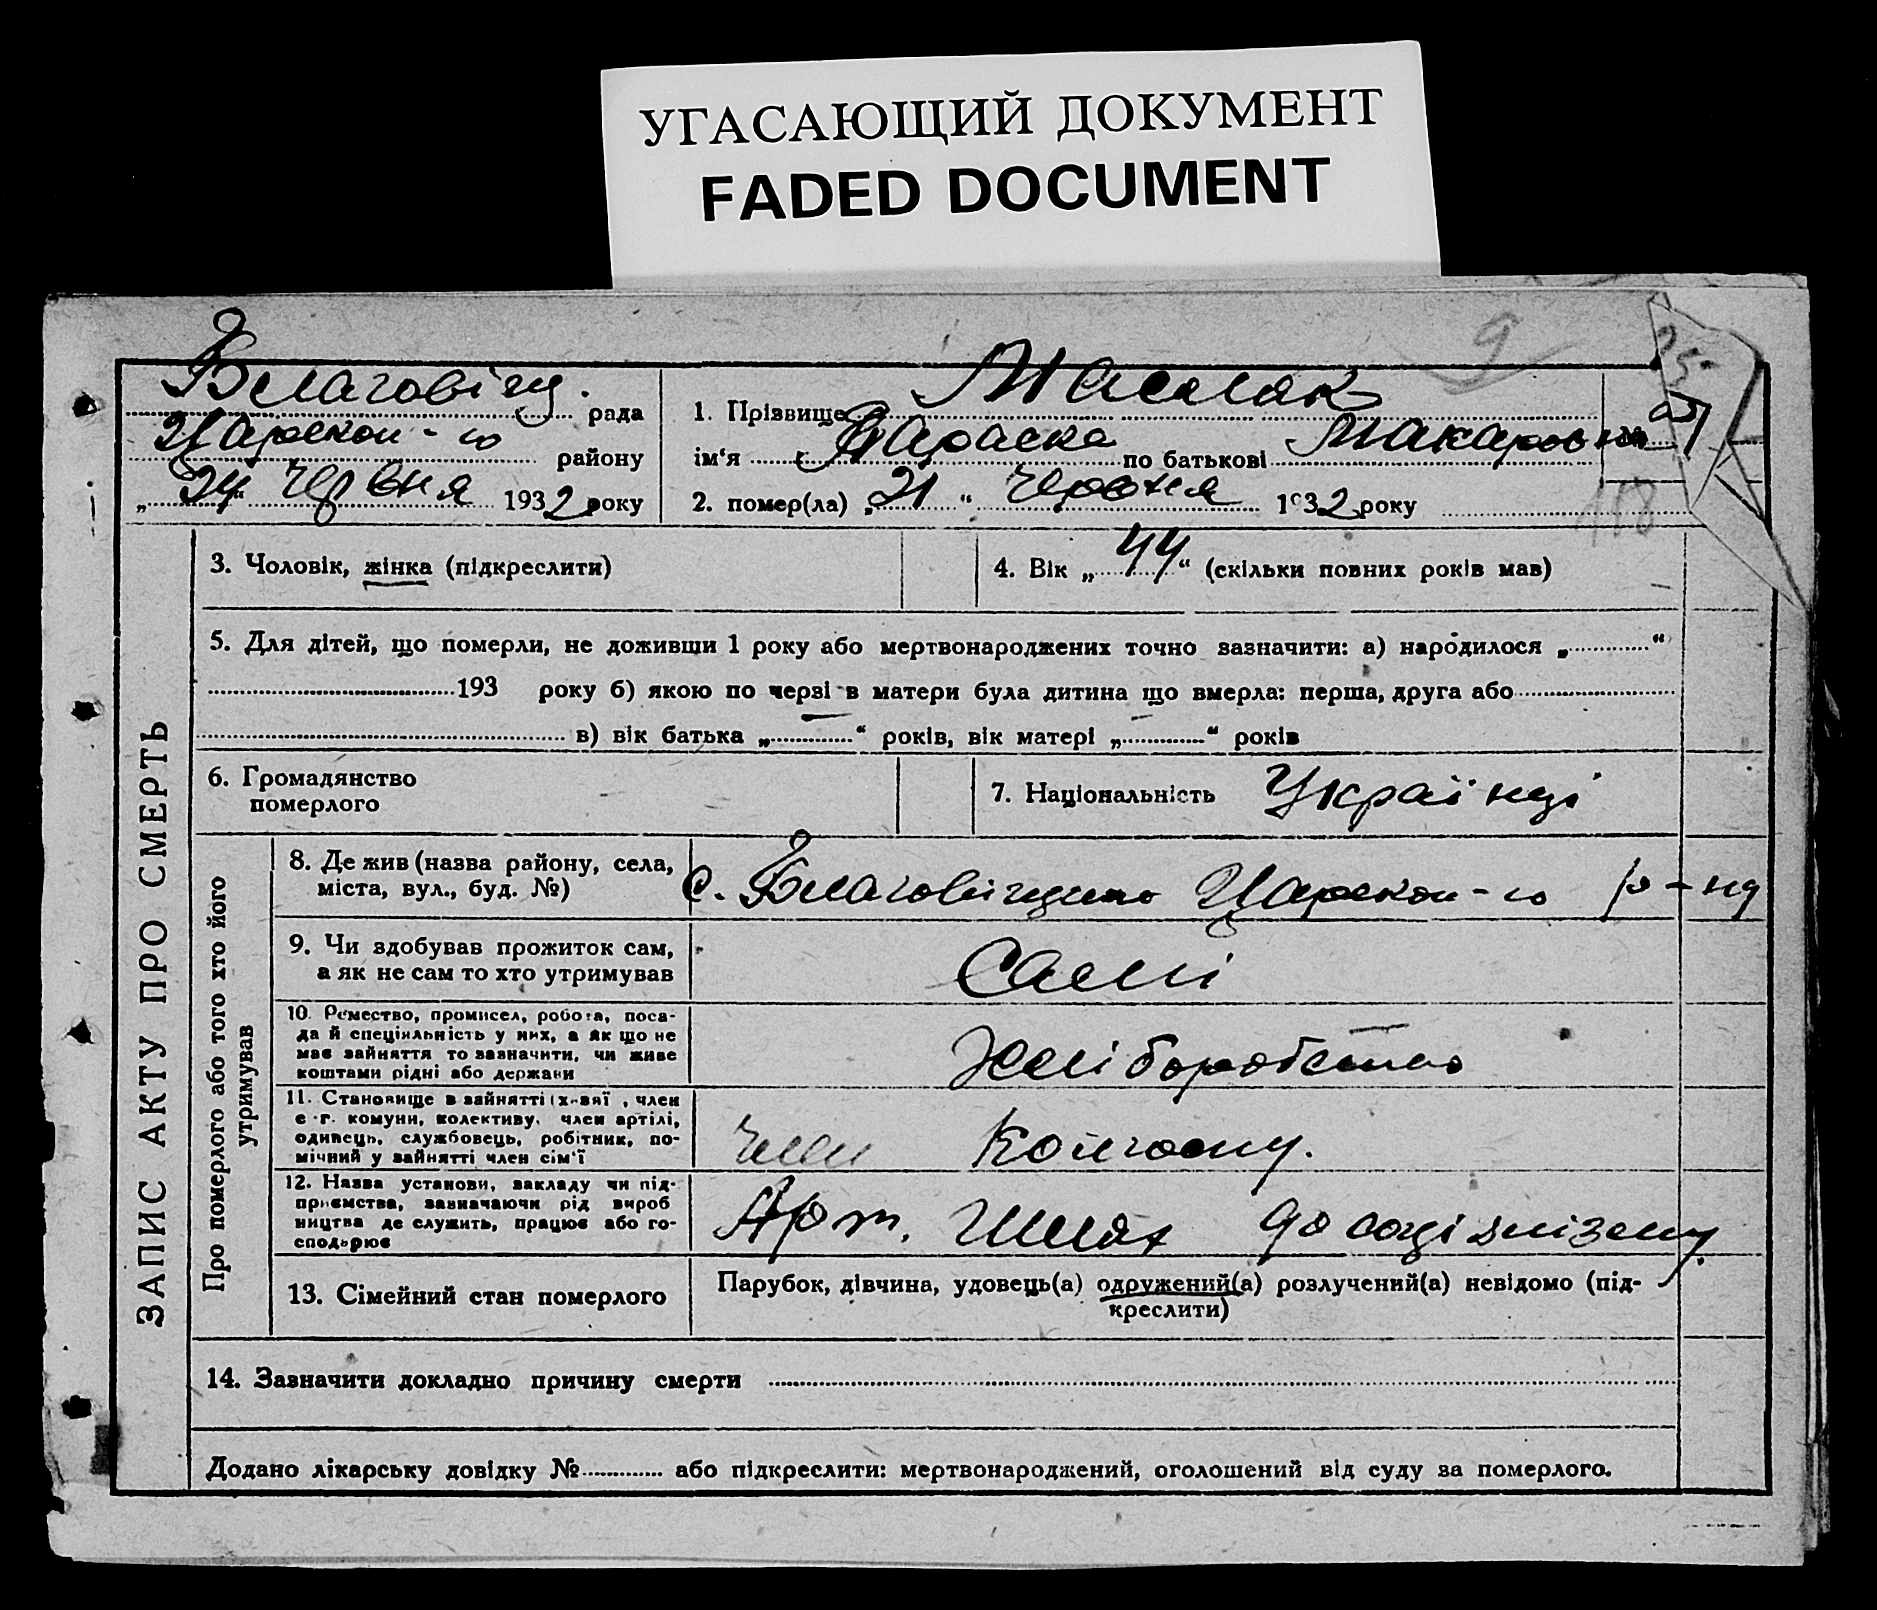 УГАСАЮЩИЙ ДОКУМЕНТ
FADED DOCUMENT
9
Благовіщ. рада
Царскои-го району
„24“ Червня 1932 року
1. Прізвище Маслак
ім‘я Параска по батькові Макаровна
2. помер(ла) „21“ Червня 1932 року
118
ЗАПИС АКТУ ПРО СМЕРТЬ
3. Чоловік, жінка (підкреслити)
4. Вік „44“ (скільки повних років мав)
5. Для дітей, що померли, не доживши 1 року або мертвонароджених точно зазначити: а) народилося „..........“
193 року б) якою по черві в матери була дитина що вмерла: перша, друга або
в) вік батька „..........“ років, вік матері „..........“ років
6. Громадянство
померлого
7. Національність Українці
Про померлого або того хто його
утримував
8. Де жив (назва району, села,
міста, вул., буд. №)
с. Благовіщенко Царскои-го р-на
9. Чи здобував прожиток сам,
а як не сам то хто утримував
Самі
10. Ремество, промисел, робота, поса-
да й спеціяльність у них, а як що не
має зайняття то зазначити, чи живе
коштами рідні або держави
Хліборобство
11. Становище в зайнятті (хазяї, член
с.-г. комуни, колективу, член артілі,
одинець, службовець, робітник, по-
мічний у зайнятті член сім‘ї
Член Колгоспу.
12. Назва установи, закладу чи під-
приємства, зазначаючи рід вироб
ництва де служить, працює або го-
сподарює
Арт. Шлях до соціялізму.
13. Сімейний стан померлого
Парубок, дівчина, удовець(а) одружений(а) розлучений(а) невідомо (під-
креслити)
14. Зазначити докладно причину смерти
Додано лікарську довідку №............. або підкреслити: мертвонароджений, оголошений від суду за померлого.